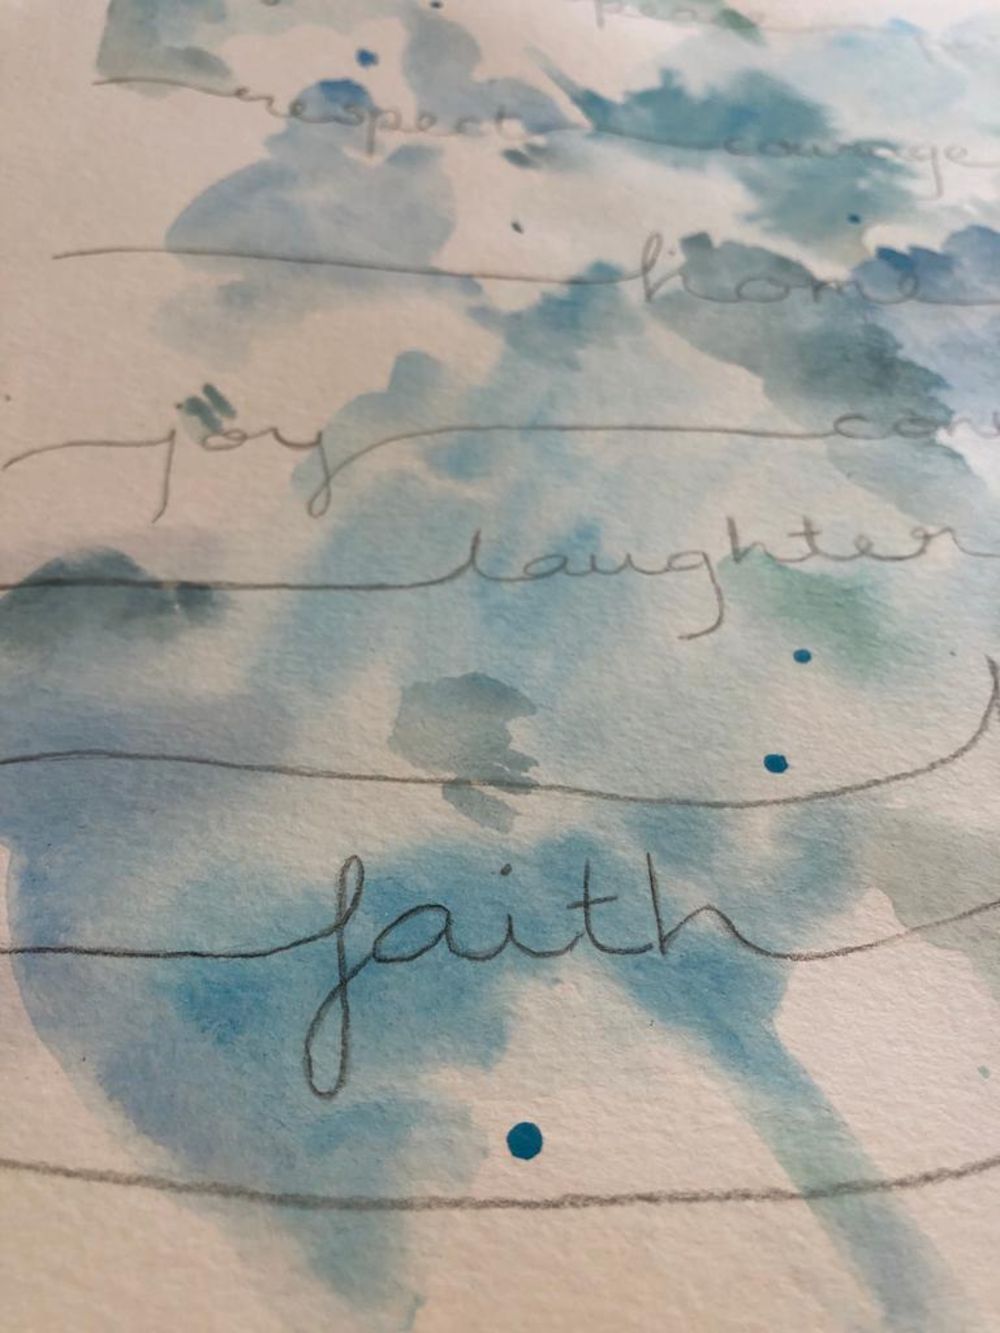 peace
respect courage
home
joy
laughter
faith